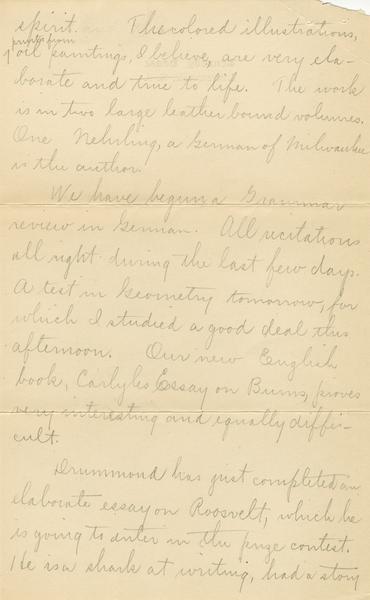 spirit. The colored illustrations,
prints from
oil paintings, I believe, are very ela-
borate and true to life. The work
is in two large leather bound volumes.
One Nehrling, a German of Milwaukee
is the author.
We have begun a Grammar
review in German. All recitations
all right during the last few days.
A test in Geometry tomorrow, for
which I studied a good deal this
afternoon. Our new English
book, Carlyles Essay on Burns, proves
very interesting and equally diffi-
cult.
Drummond has just completed an
elaborate essay on Roosvelt, which he
is going to enter in the prize contest.
He is a shark at writing, had a story